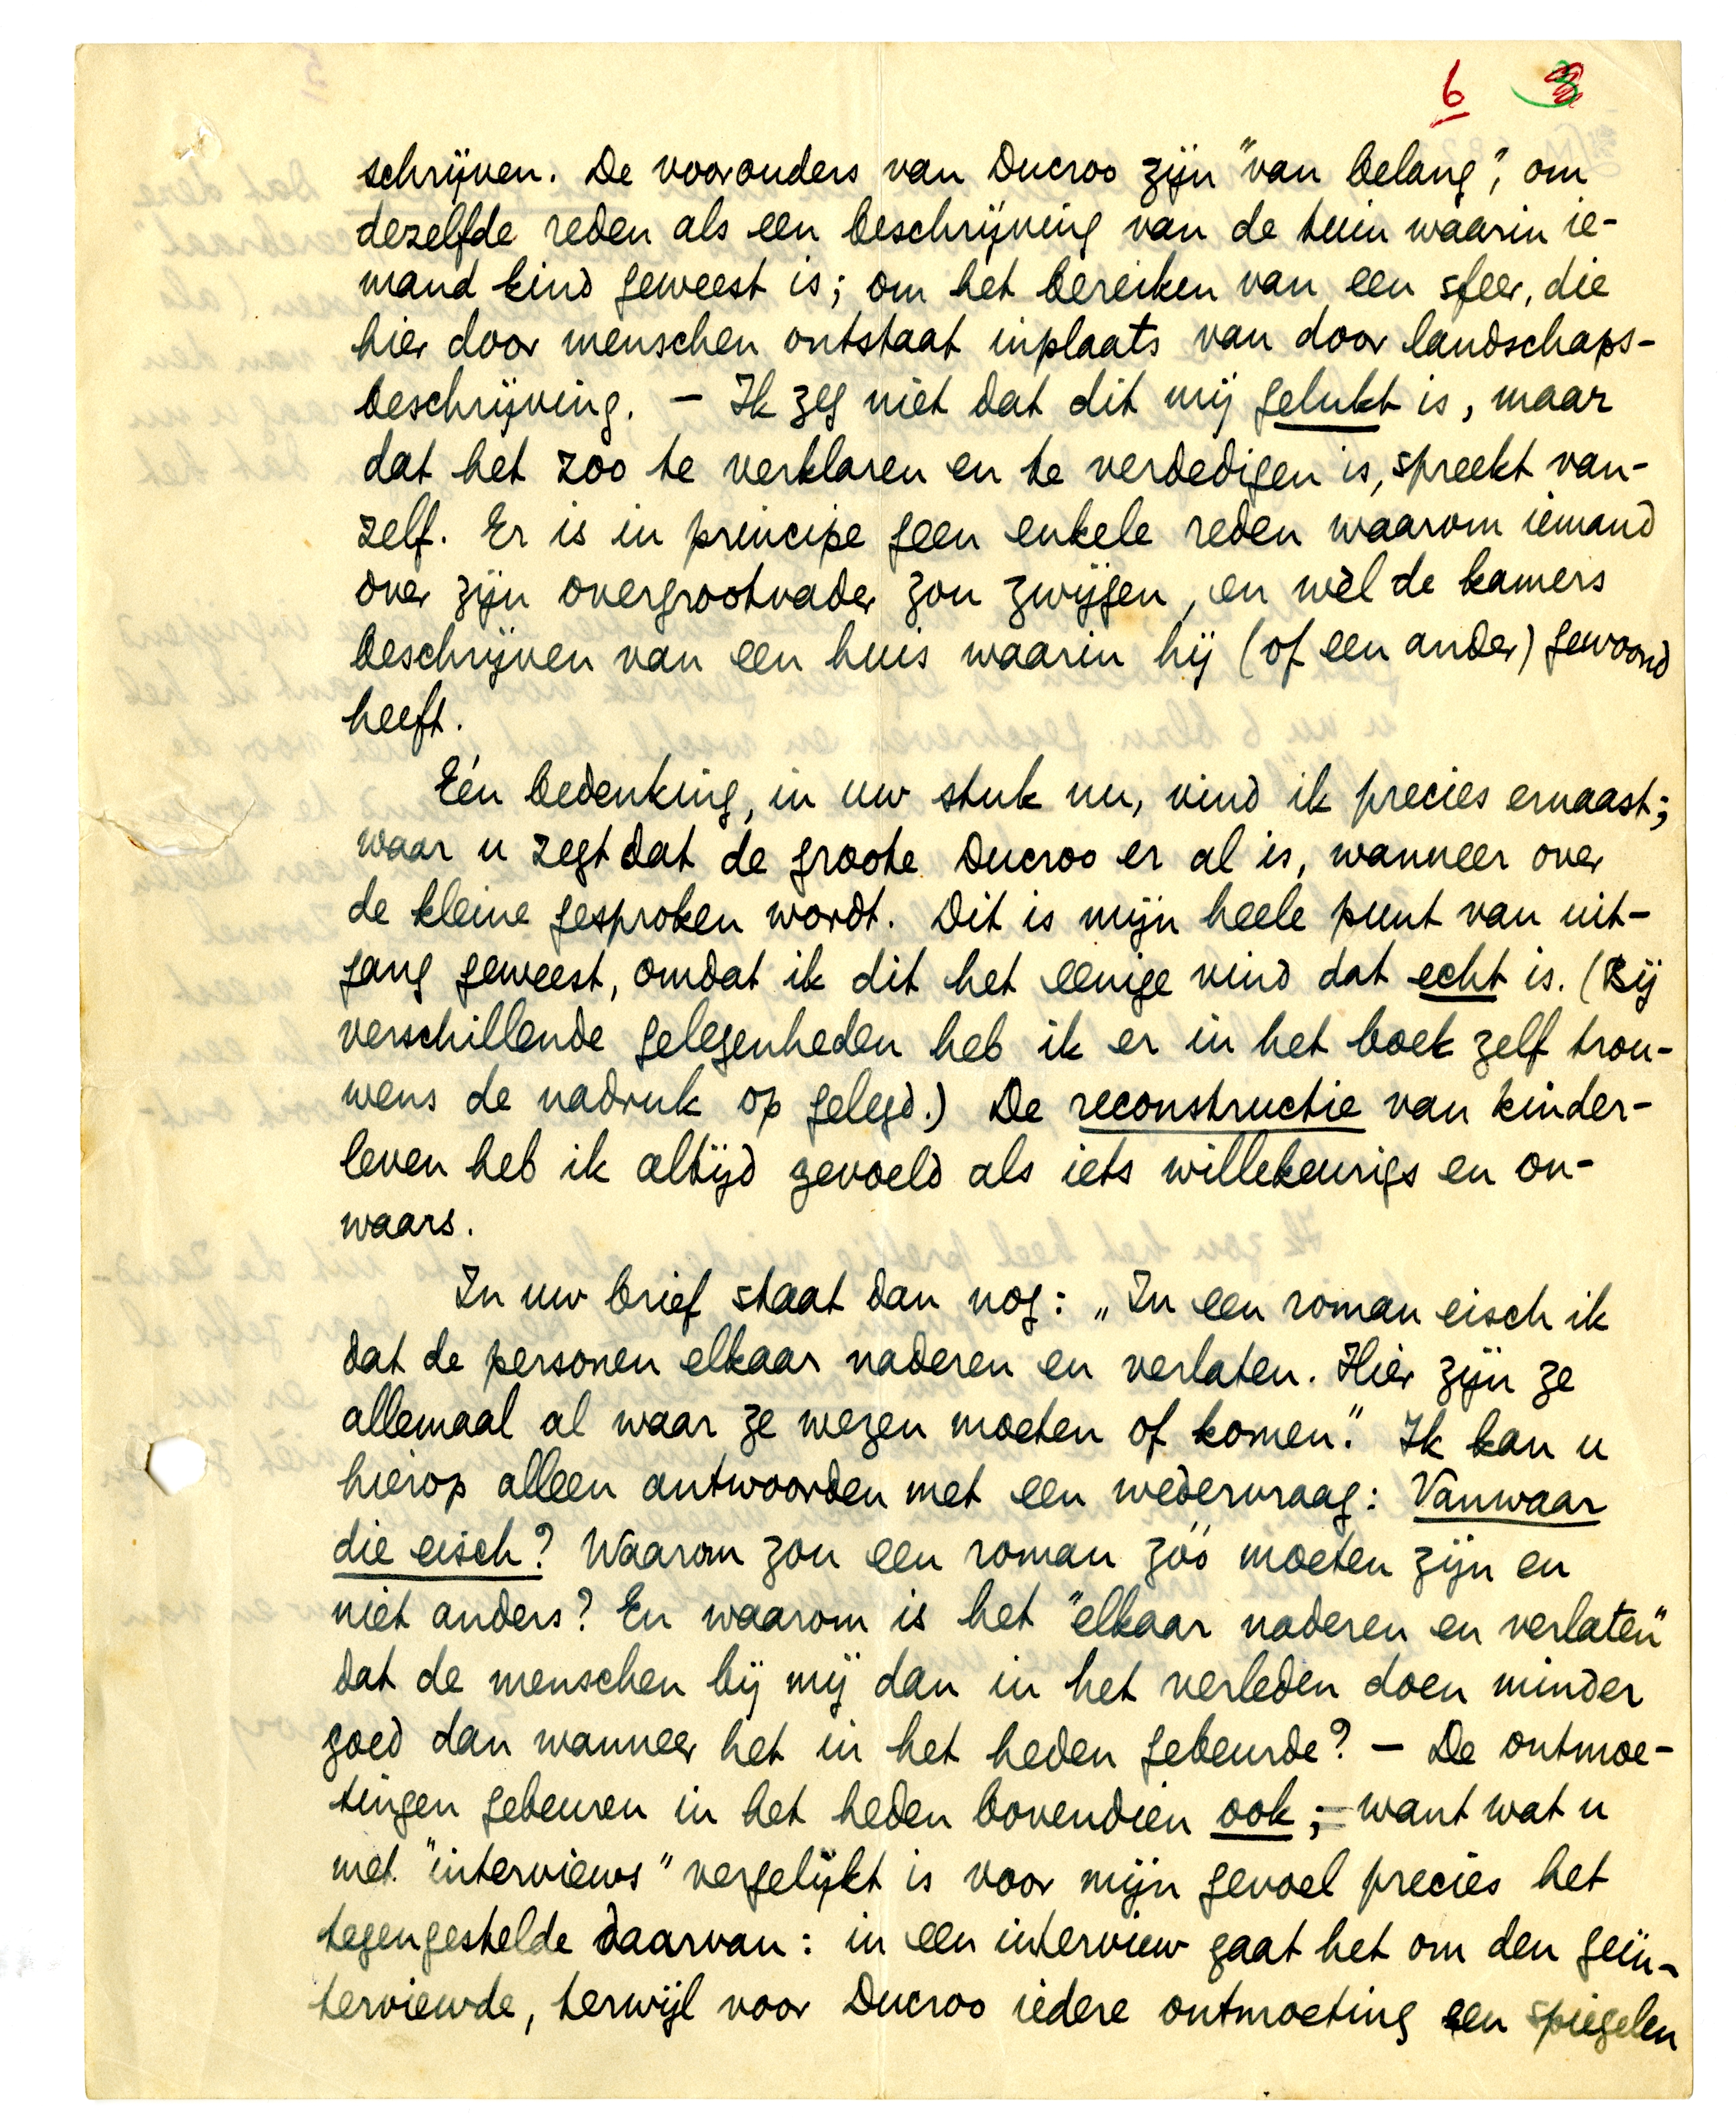 6 3
schrijven. De voorouders van Ducroo zijn "van belang", om
dezelfde reden als een beschrijving van de tuin waarin ie-
mand kind geweest is; om het bereiken van een sfeer, die
hier door menschen ontstaat inplaats van door landschaps-
beschrijving. – Ik zeg niet dat dit mij gelukt is, maar
dat het zoo te verklaren en te verdedigen is, spreekt van-
zelf. Er is in principe geen enkele reden waarom iemand
over zijn overgrootvader zou zwijgen, en wèl de kamers
beschrijven van een huis waarin hij (of een ander) gewoond
heeft.
Eén bedenking, in uw stuk nu, vind ik precies ernaast;
waar u zegt dat de groote Ducroo er al is, wanneer over
de kleine gesproken wordt. Dit is mijn heele punt van uit-
gang geweest, omdat ik dit het eenige vind dat echt is. (Bij
verschillende gelegenheden heb ik er in het boek zelf trou-
wens de nadruk op gelegd.) De reconstructie van kinder-
leven heb ik altijd gevoeld als iets willekeurigs en on-
waars.
In uw brief staat dan nog: „In een roman eisch ik
dat de personen elkaar naderen en verlaten. Hier zijn ze
allemaal al waar ze wezen moeten of komen." Ik kan u
hierop alleen antwoorden met een wedervraag: Vanwaar
die eisch? Waarom zou een roman zóó moeten zijn en
niet anders? En waarom is het "elkaar naderen en verlaten"
dat de menschen bij mij dan in het verleden doen minder
goed dan wanneer het in het heden gebeurde? – De ontmoe-
tingen gebeuren in het heden bovendien ook; want wat u
met "interviews" vergelijkt is voor mijn gevoel precies het
tegengestelde daarvan: in een interview gaat het om den geïn-
terviewde, terwijl voor Ducroo iedere ontmoeting een spiegelen